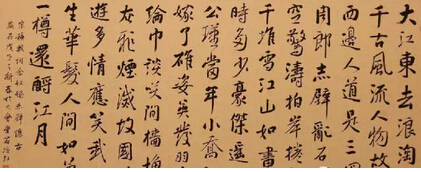 大江東去浪淘
千古風流人物故
西邊人道是三
周郎赤壁亂石
空驚濤拍岸
千堆雪江山如畫
時多少豪傑遙
公瑾當年小喬
嫁了雄姿英發羽
綸巾談笑間檣
灰飛煙滅故國
遊多情應笑我
生華髮人間如
一樽還酹江月
宋蘇軾詞念奴嬌赤壁懷古